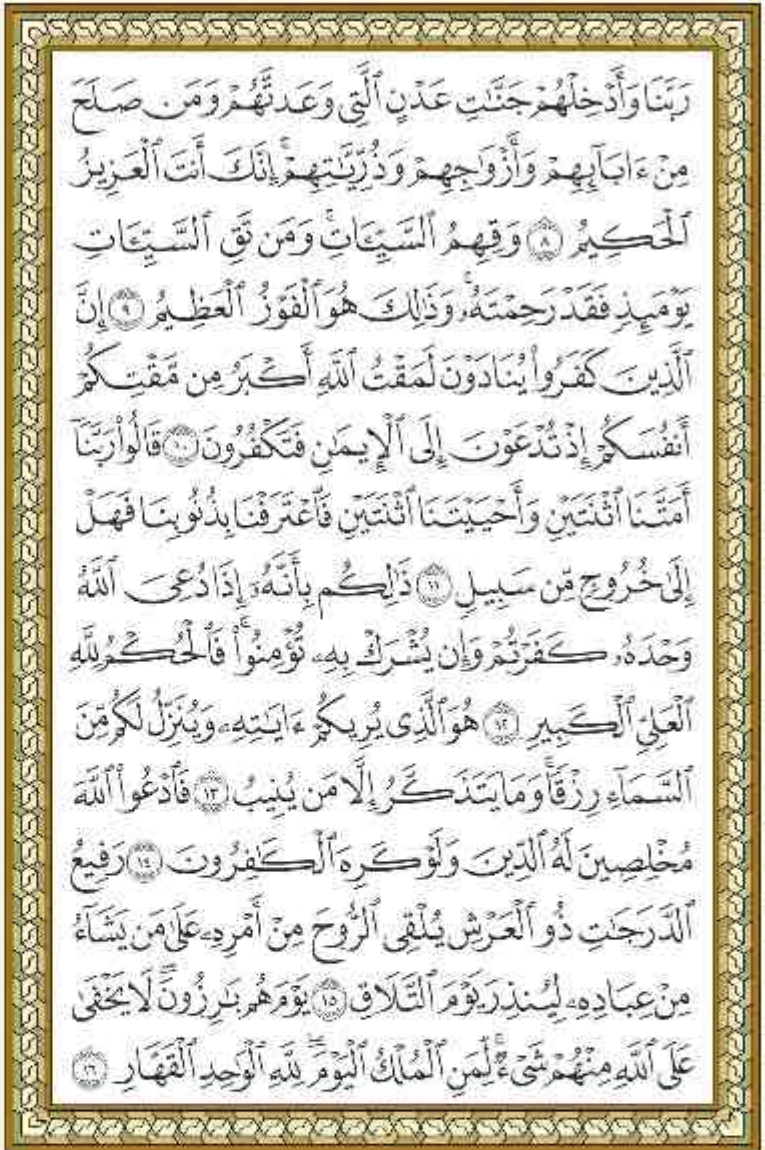 رَبَّنَا وَأَدْخِلْهُمْ جَنَّٰتِ عَدْنٍ ٱلَّتِى وَعَدتَّهُمْ وَمَن صَلَحَ
مِنْ ءَابَآئِهِمْ وَأَزْوَٰجِهِمْ وَذُرِّيَّٰتِهِمْ ۚ إِنَّكَ أَنتَ ٱلْعَزِيزُ
ٱلْحَكِيمُ ۝٨ وَقِهِمُ ٱلسَّيِّـَٔاتِ ۚ وَمَن تَقِ ٱلسَّيِّـَٔاتِ
يَوْمَئِذٍ فَقَدْ رَحِمْتَهُۥ ۚ وَذَٰلِكَ هُوَ ٱلْفَوْزُ ٱلْعَظِيمُ ۝٩ إِنَّ
ٱلَّذِينَ كَفَرُوا۟ يُنَادَوْنَ لَمَقْتُ ٱللَّهِ أَكْبَرُ مِن مَّقْتِكُمْ
أَنفُسَكُمْ إِذْ تُدْعَوْنَ إِلَى ٱلْإِيمَٰنِ فَتَكْفُرُونَ ۝١٠ قَالُوا۟ رَبَّنَآ
أَمَتَّنَا ٱثْنَتَيْنِ وَأَحْيَيْتَنَا ٱثْنَتَيْنِ فَٱعْتَرَفْنَا بِذُنُوبِنَا فَهَلْ
إِلَىٰ خُرُوجٍ مِّن سَبِيلٍ ۝١١ ذَٰلِكُم بِأَنَّهُۥٓ إِذَا دُعِىَ ٱللَّهُ
وَحْدَهُۥ كَفَرْتُمْ وَإِن يُشْرَكْ بِهِۦ تُؤْمِنُوا۟ ۚ فَٱلْحُكْمُ لِلَّهِ
ٱلْعَلِىِّ ٱلْكَبِيرِ ۝١٢ هُوَ ٱلَّذِى يُرِيكُمْ ءَايَٰتِهِۦ وَيُنَزِّلُ لَكُم مِّنَ
ٱلسَّمَآءِ رِزْقًا ۚ وَمَا يَتَذَكَّرُ إِلَّا مَن يُنِيبُ ۝١٣ فَٱدْعُوا۟ ٱللَّهَ
مُخْلِصِينَ لَهُ ٱلدِّينَ وَلَوْ كَرِهَ ٱلْكَٰفِرُونَ ۝١٤ رَفِيعُ
ٱلدَّرَجَٰتِ ذُو ٱلْعَرْشِ يُلْقِى ٱلرُّوحَ مِنْ أَمْرِهِۦ عَلَىٰ مَن يَشَآءُ
مِنْ عِبَادِهِۦ لِيُنذِرَ يَوْمَ ٱلتَّلَاقِ ۝١٥ يَوْمَ هُم بَٰرِزُونَ ۖ لَا يَخْفَىٰ
عَلَى ٱللَّهِ مِنْهُمْ شَىْءٌ ۚ لِّمَنِ ٱلْمُلْكُ ٱلْيَوْمَ ۖ لِلَّهِ ٱلْوَٰحِدِ ٱلْقَهَّارِ ۝١٦